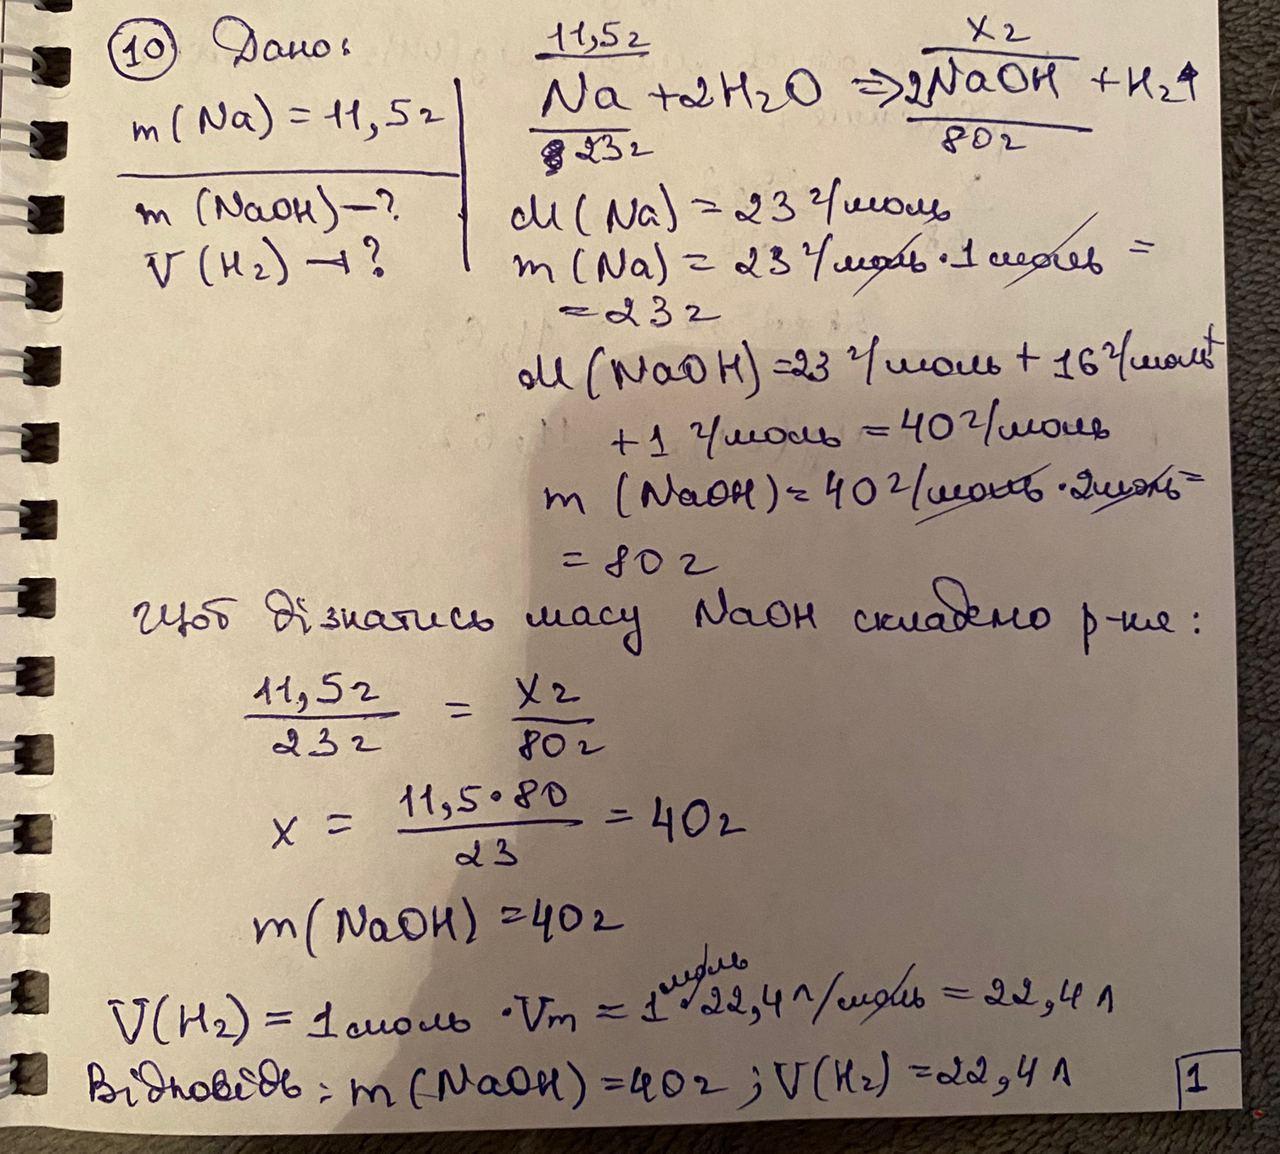 10 Дано:
m(Na) = 11,5г
m(NaOH) – ?
V(H₂) – ?
11,5г xг
Na + 2H₂O ⇒ 2NaOH + H₂↑
23г 80г
M(Na) = 23 г/моль
m(Na) = 23 г/моль · 1 моль =
= 23г
M(NaOH) = 23 г/моль + 16 г/моль +
+ 1 г/моль = 40 г/моль
m(NaOH) = 40 г/моль · 2 моль =
= 80 г
Щоб дізнатись масу NaOH складемо р-ня:
11,5г / 23г = xг / 80г
x = 11,5 · 80 / 23 = 40г
m(NaOH) = 40г
V(H₂) = 1 моль · Vm = 1 моль · 22,4 л/моль = 22,4 л
Відповідь: m(NaOH) = 40г; V(H₂) = 22,4 л
1